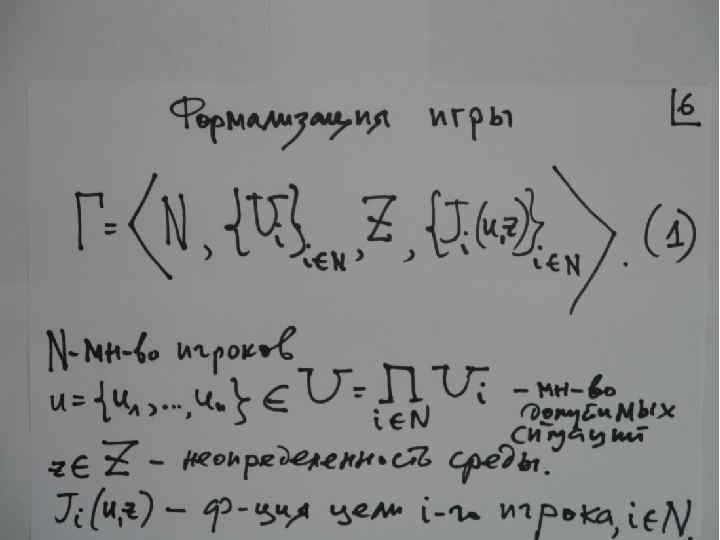 Формализация игры 6
Γ = ⟨N, {U_i}_{i∈N}, Z, {J_i(u,z)}_{i∈N}⟩. (1)
N - мн-во игроков
u = {u_1, ..., u_n} ∈ U = ∏_{i∈N} U_i - мн-во
допустимых
ситуаций
z ∈ Z - неопределенность среды.
J_i(u,z) - ф-ция цели i-го игрока, i∈N.